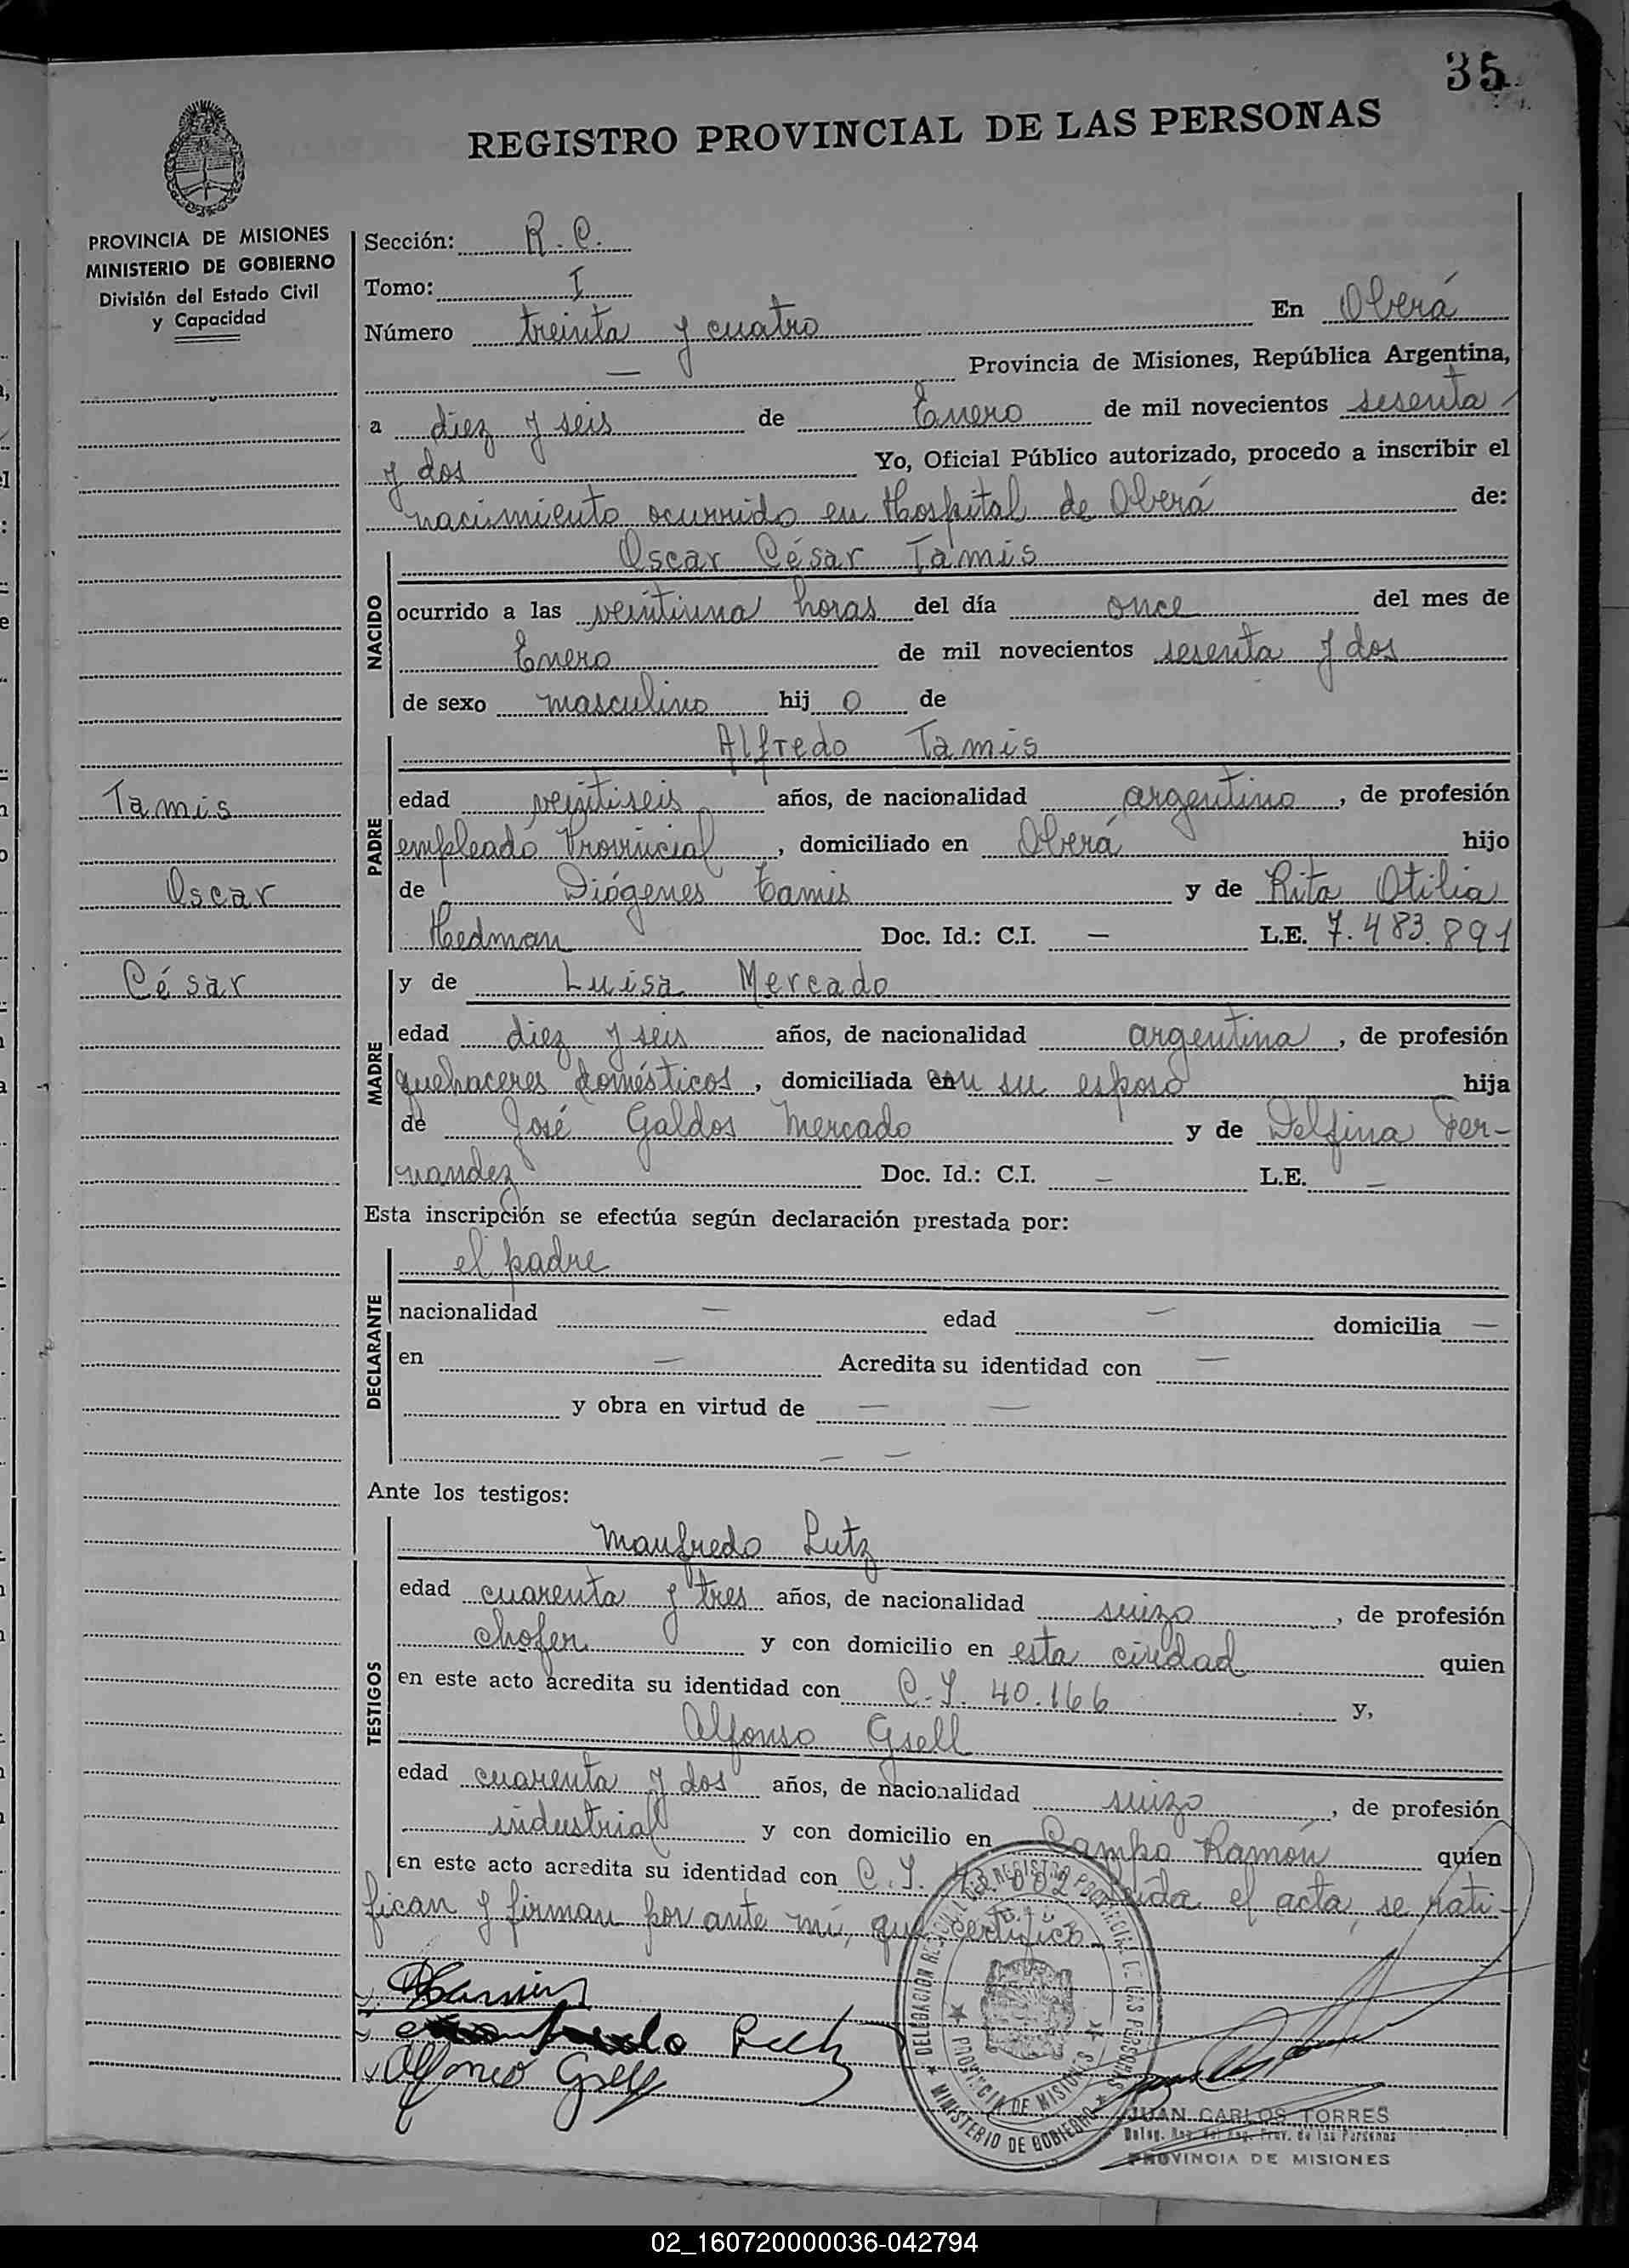 35
REGISTRO PROVINCIAL DE LAS PERSONAS
PROVINCIA DE MISIONES
MINISTERIO DE GOBIERNO
División del Estado Civil
y Capacidad
Tamis
Oscar
César
Sección: R. C.
Tomo: I
Número treinta y cuatro En Oberá
— Provincia de Misiones, República Argentina,
a diez y seis de Enero de mil novecientos sesenta
y dos Yo, Oficial Público autorizado, procedo a inscribir el
nacimiento ocurrido en Hospital de Oberá de:
NACIDO
Oscar César Tamis
ocurrido a las veintiuna horas del día once del mes de
Enero de mil novecientos sesenta y dos
de sexo masculino hij o de
PADRE
Alfredo Tamis
edad veintiseis años, de nacionalidad argentino, de profesión
empleado Provincial, domiciliado en Oberá hijo
de Diógenes Tamis y de Rita Otilia
Hedman Doc. Id.: C.I. — L.E. 7.483.891
MADRE
y de Luisa Mercado
edad diez y seis años, de nacionalidad argentina, de profesión
quehaceres domésticos, domiciliada con su esposo hija
de José Galdos Mercado y de Delfina Fer-
nandez Doc. Id.: C.I. — L.E. —
Esta inscripción se efectúa según declaración prestada por:
DECLARANTE
el padre
nacionalidad — edad — domicilia —
en — Acredita su identidad con —
y obra en virtud de — —
— —
Ante los testigos:
TESTIGOS
Manfredo Lutz
edad cuarenta y tres años, de nacionalidad suizo, de profesión
chofer y con domicilio en esta ciudad quien
en este acto acredita su identidad con C.I. 40.166 y,
Alfonso Gsell
edad cuarenta y dos años, de nacionalidad suizo, de profesión
industrial y con domicilio en Campo Ramón quien
en este acto acredita su identidad con C.I. Leída el acta, se rati-
fican y firman por ante mí, que certifico
Alfonso Gsell
MINISTERIO DE GOBIERNO
PROVINCIA DE MISIONES
JUAN CARLOS TORRES
PROVINCIA DE MISIONES
02_160720000036-042794